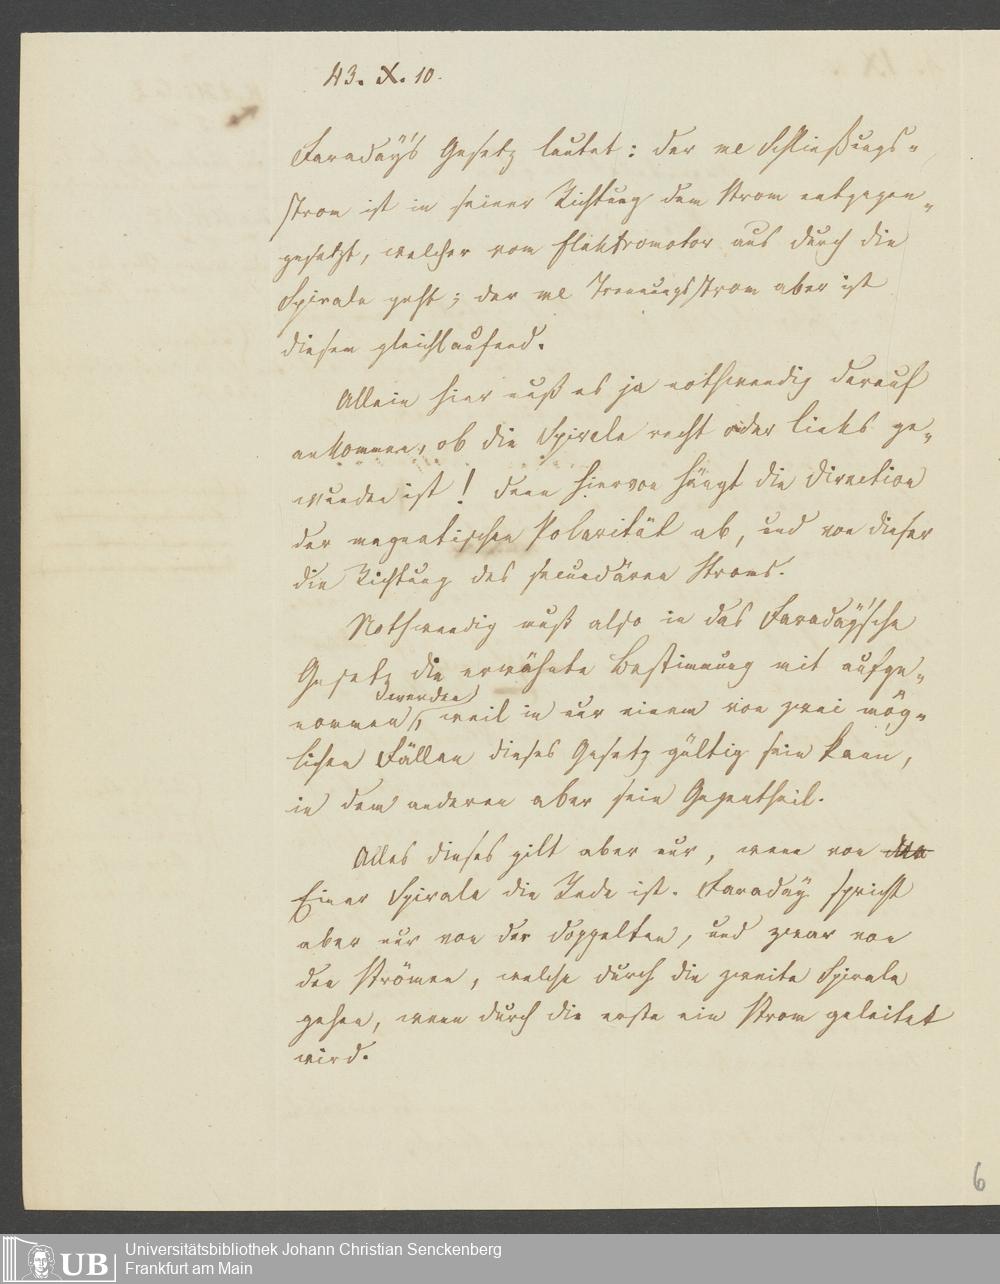 43. X. 10.
Faraday's Gesetz lautet: der me Schließungs-
strom ist in seiner Richtung dem Strom entgegen-
gesetzt, welcher vom Elektromotor aus durch die
Spirale geht; der me Trennungsstrom aber ist
diesem gleichlaufend.
Allein hier muß es ja nothwendig darauf
ankommen, ob die Spirale recht oder links ge-
wunden ist! denn hiervon hängt die Direction
der magnetischen Polarität ab, und von dieser
die Richtung des secundären Stroms.
Nothwendig muß also in das Faraday'sche
Gesetz die erwähnte Bestimmung mit aufge-
nommen werden, weil in nur einem von zwei mög-
lichen Fällen dieses Gesetz gültig sein kann,
in dem anderen aber sein Gegentheil.
Alles dieses gilt aber nur, wenn von
Einer Spirale die Rede ist. Faraday spricht
aber nur von der doppelten, und zwar von
den Strömen, welche durch die zweite Spirale
gehen, wenn durch die erste ein Strom geleitet
wird.
6
UB
Universitätsbibliothek Johann Christian Senckenberg
Frankfurt am Main